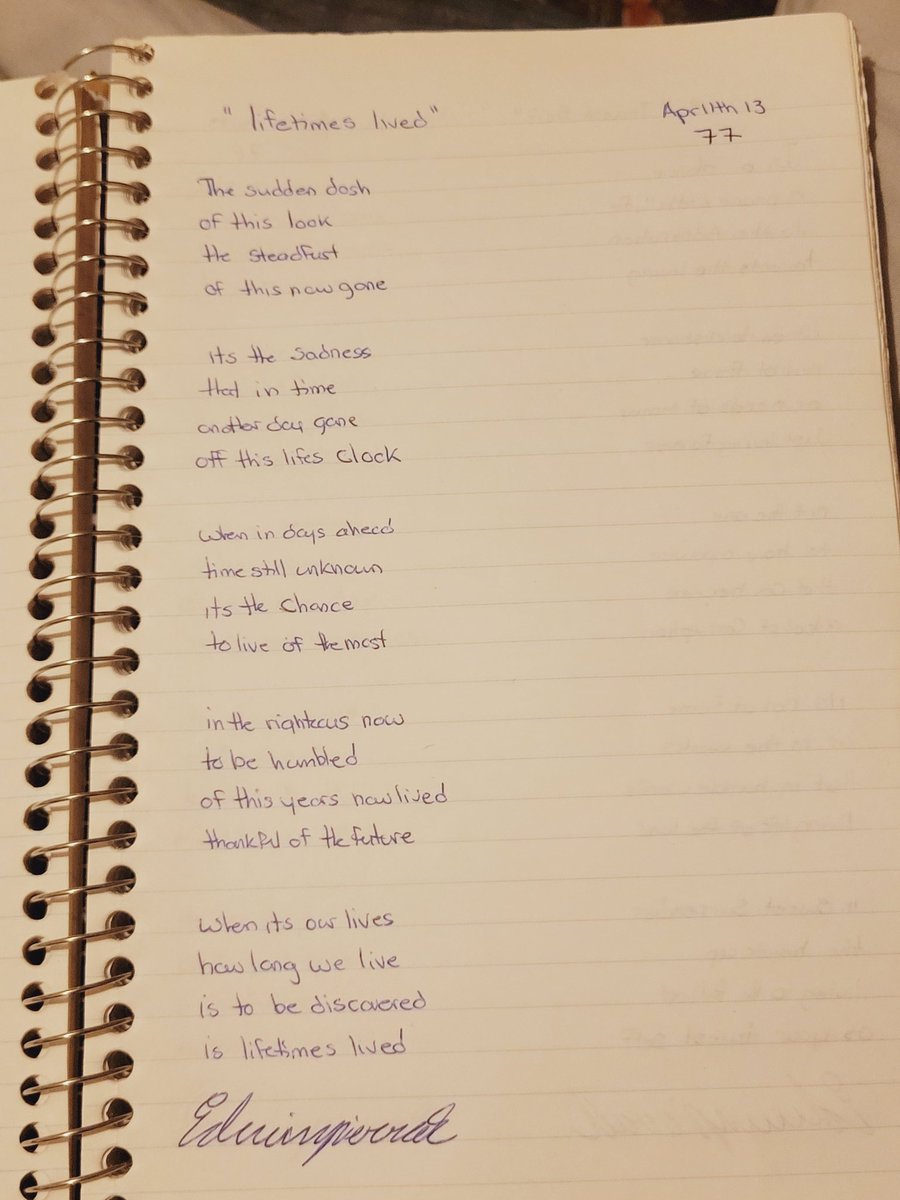 "lifetimes lived"
Aprilth 13
77
The sudden dash
of this look
the steadfust
of this now gone
its the sadness
that in time
another day gone
off this lifes clock
when in days ahead
time still unknown
its the chance
to live of the most
in the righteous now
to be humbled
of this years now lived
thankful of the future
when its our lives
how long we live
is to be discovered
is lifetimes lived